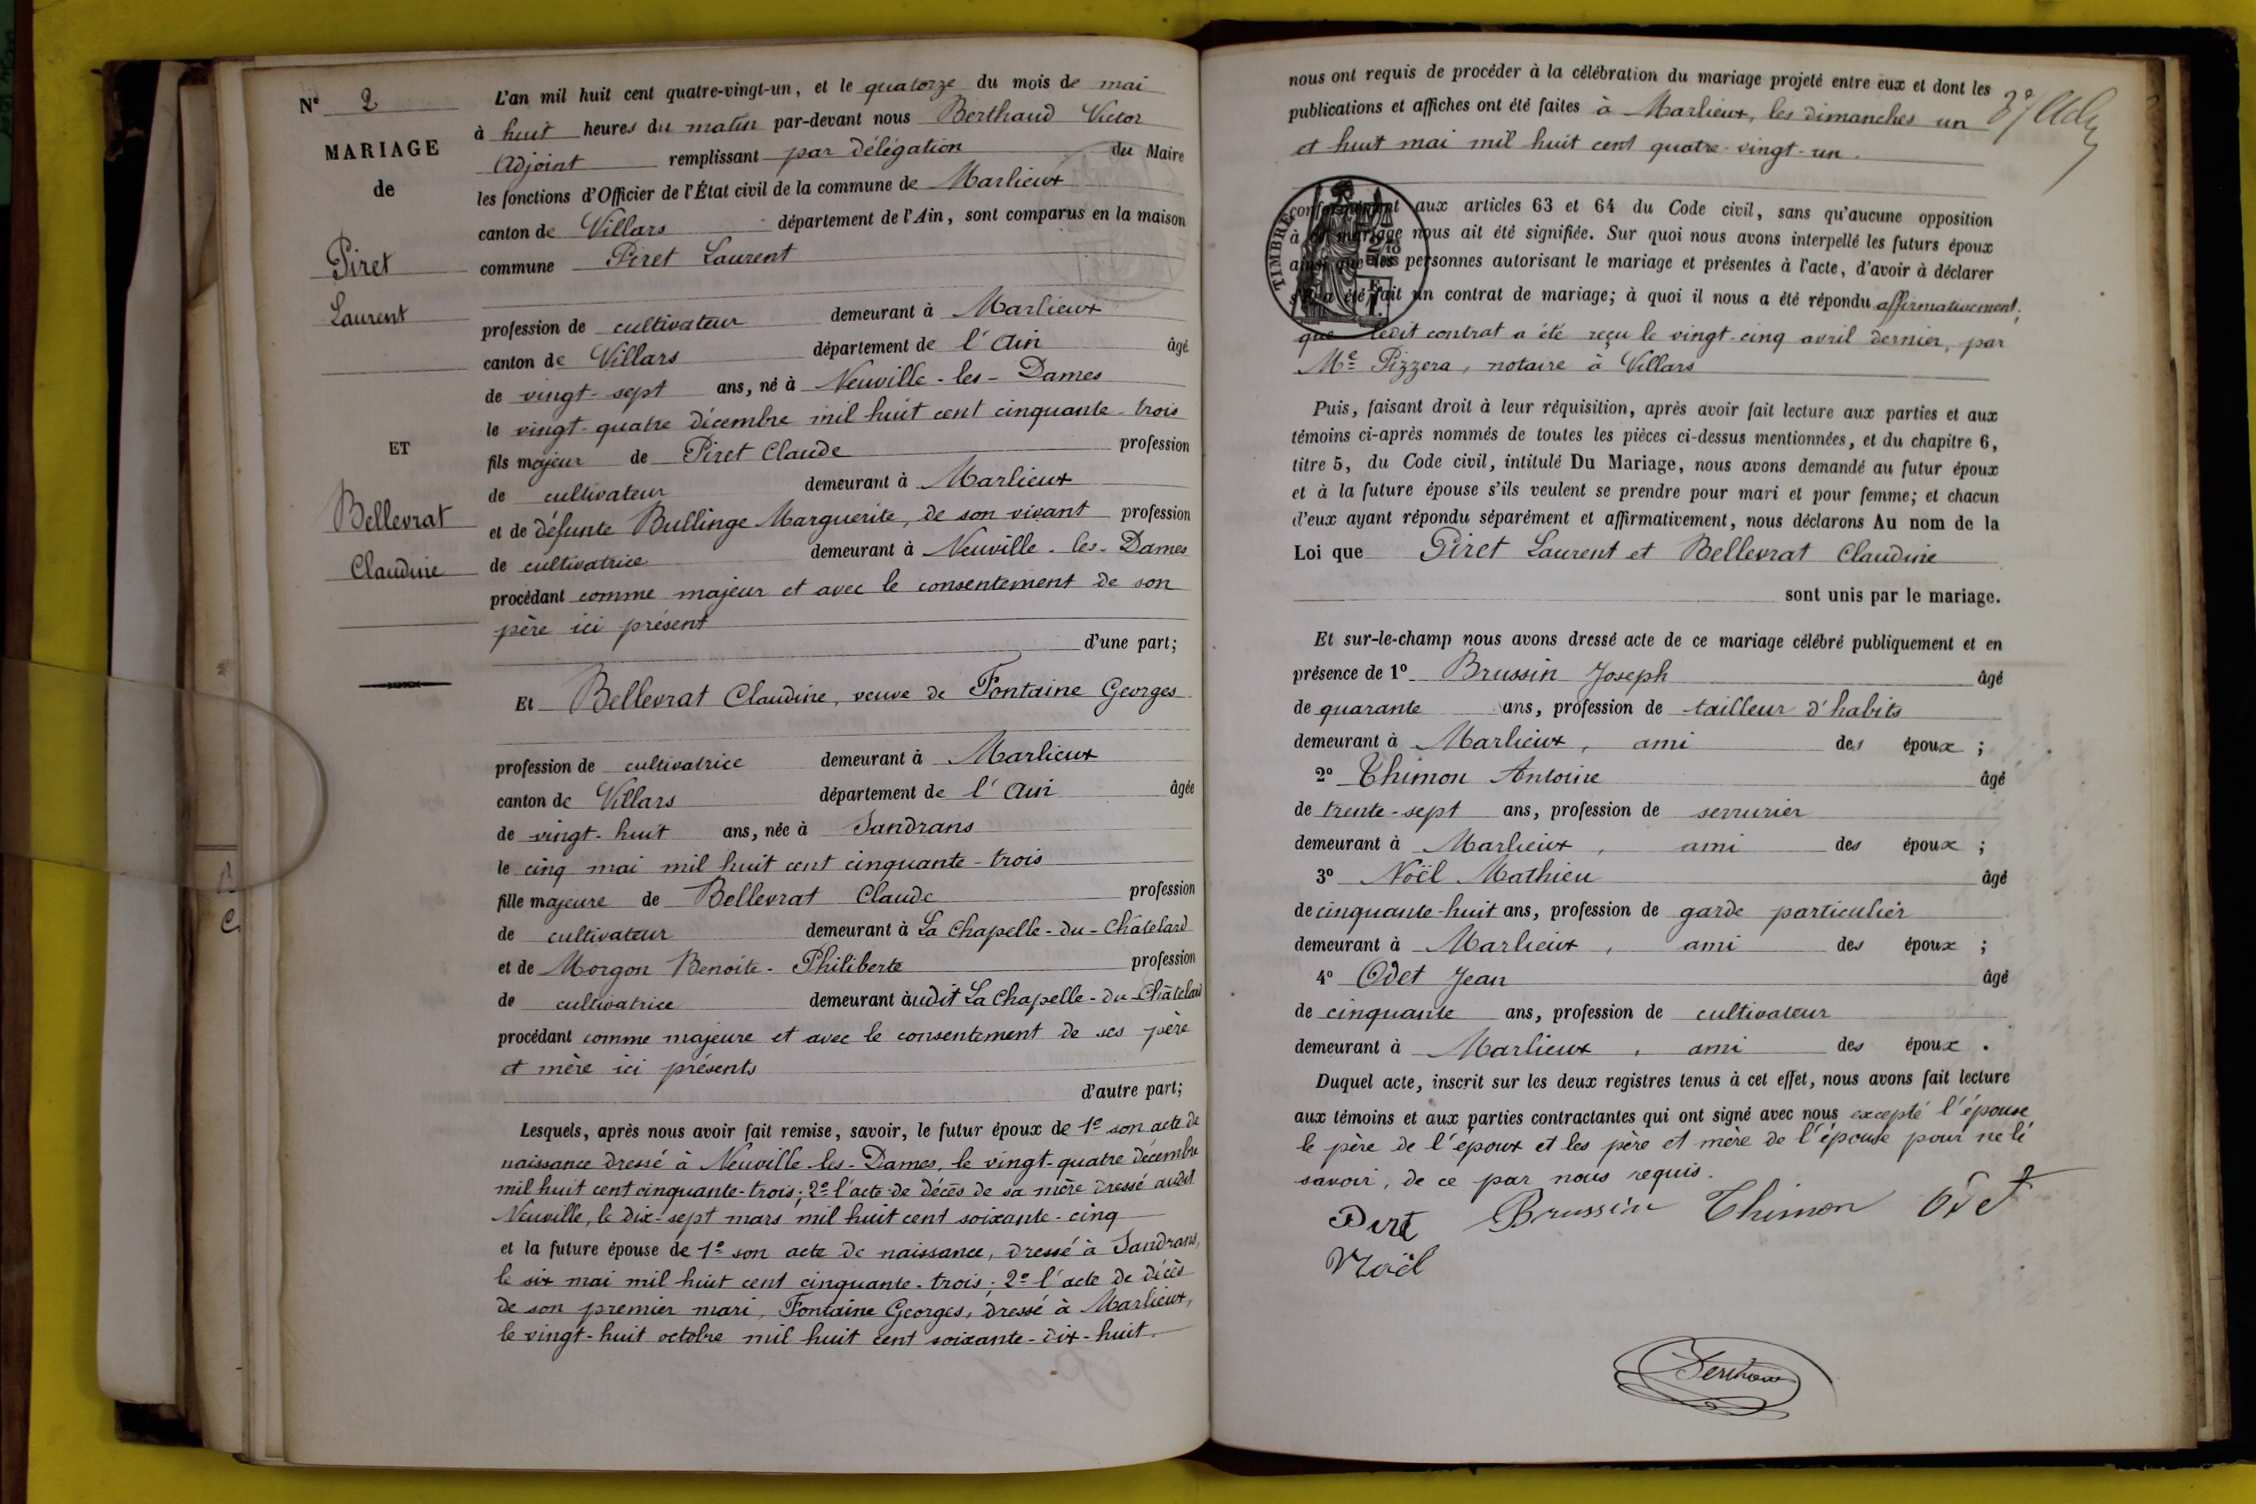 N° 2
MARIAGE
de
Piret
Laurent
ET
Bellevrat
Claudine
L'an mil huit cent quatre-vingt-un, et le quatorze du mois de mai
à huit heures du matin par-devant nous Berthaud Victor
Adjoint remplissant par délégation du Maire
les fonctions d'Officier de l'État civil de la commune de Marlieux
canton de Villars département de l'Ain, sont comparus en la maison
commune Piret Laurent
profession de cultivateur demeurant à Marlieux
canton de Villars département de l'Ain âgé
de vingt-sept ans, né à Neuville-les-Dames
le vingt-quatre décembre mil huit cent cinquante-trois
fils majeur de Piret Claude profession
de cultivateur demeurant à Marlieux
et de défunte Bullinge Marguerite, de son vivant profession
de cultivatrice demeurant à Neuville-les-Dames
procédant comme majeur et avec le consentement de son
père ici présent
d'une part;
Et Bellevrat Claudine, veuve de Fontaine Georges
profession de cultivatrice demeurant à Marlieux
canton de Villars département de l'Ain âgée
de vingt-huit ans, née à Sandrans
le cinq mai mil huit cent cinquante-trois
fille majeure de Bellevrat Claude profession
de cultivateur demeurant à La Chapelle-du-Châtelard
et de Morgon Benoite-Philiberte profession
de cultivatrice demeurant àudit La Chapelle-du-Châtelard
procédant comme majeure et avec le consentement de ses père
et mère ici présents
d'autre part;
Lesquels, après nous avoir fait remise, savoir, le futur époux de 1° son acte de
naissance dressé à Neuville-les-Dames, le vingt-quatre décembre
mil huit cent cinquante-trois; 2° l'acte de décès de sa mère dressé audit
Neuville, le dix-sept mars mil huit cent soixante-cinq
et la future épouse de 1° son acte de naissance, dressé à Sandrans,
le six mai mil huit cent cinquante-trois; 2° l'acte de décès
de son premier mari, Fontaine Georges, dressé à Marlieux,
le vingt-huit octobre mil huit cent soixante-dix-huit.
nous ont requis de procéder à la célébration du mariage projeté entre eux et dont les
publications et affiches ont été faites à Marlieux, les dimanches un
et huit mai mil huit cent quatre-vingt-un.
TIMBRE
conformément aux articles 63 et 64 du Code civil, sans qu'aucune opposition
à ce mariage nous ait été signifiée. Sur quoi nous avons interpellé les futurs époux
ainsi que les personnes autorisant le mariage et présentes à l'acte, d'avoir à déclarer
s'il a été fait un contrat de mariage; à quoi il nous a été répondu affirmativement;
que ledit contrat a été reçu le vingt-cinq avril dernier, par
Me Pizzera, notaire à Villars
Puis, faisant droit à leur réquisition, après avoir fait lecture aux parties et aux
témoins ci-après nommés de toutes les pièces ci-dessus mentionnées, et du chapitre 6,
titre 5, du Code civil, intitulé Du Mariage, nous avons demandé au futur époux
et à la future épouse s'ils veulent se prendre pour mari et pour femme; et chacun
d'eux ayant répondu séparément et affirmativement, nous déclarons Au nom de la
Loi que Piret Laurent et Bellevrat Claudine
sont unis par le mariage.
Et sur-le-champ nous avons dressé acte de ce mariage célébré publiquement et en
présence de 1° Brussin Joseph âgé
de quarante ans, profession de tailleur d'habits
demeurant à Marlieux, ami des époux ;
2° Thimon Antoine âgé
de trente-sept ans, profession de serrurier
demeurant à Marlieux, ami des époux ;
3° Noël Mathieu âgé
de cinquante-huit ans, profession de garde particulier
demeurant à Marlieux, ami des époux ;
4° Odet Jean âgé
de cinquante ans, profession de cultivateur
demeurant à Marlieux, ami des époux .
Duquel acte, inscrit sur les deux registres tenus à cet effet, nous avons fait lecture
aux témoins et aux parties contractantes qui ont signé avec nous excepté l'épouse
le père de l'époux et les père et mère de l'épouse pour ne le
savoir, de ce par nous requis.
Piret Brussin Thimon Odet
Noël
Berthaud